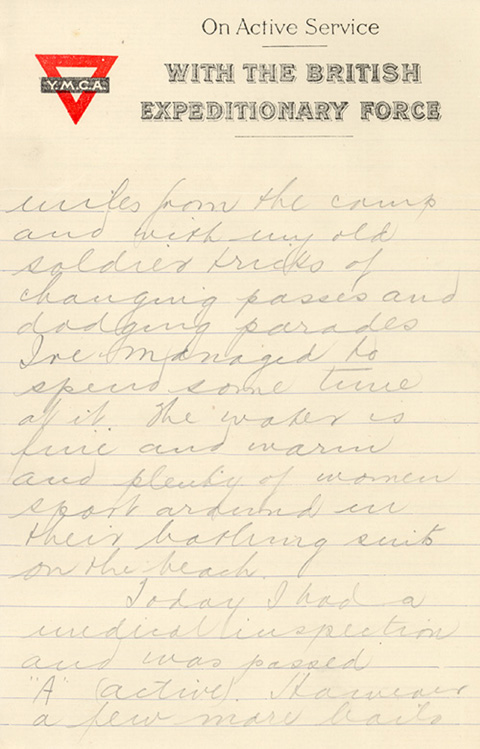 On Active Service
WITH THE BRITISH
EXPEDITIONARY FORCE
Y.M.C.A.
miles from the camp
and with my old
soldier tricks of
changing passes and
dodging parades
I've managed to
spend some time
at it. The water is
fine and warm
and plenty of women
sport around in
their bathing suits
on the beach.
Today I had a
medical inspection
and was passed
"A" (active). However
a few more boils